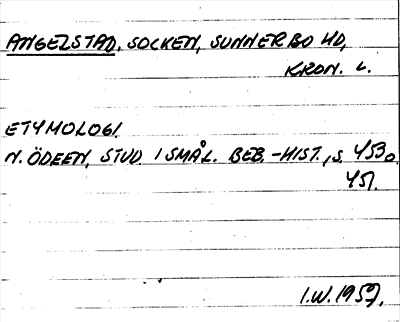 ANGELSTAD, SOCKEN, SUNNERBO HD,
KRON. L.
ETYMOLOGI.
N. ÖDEEN, STUD. I SMÅL. BEB.-HIST., S. 453 o.
451.
I.W. 1957.